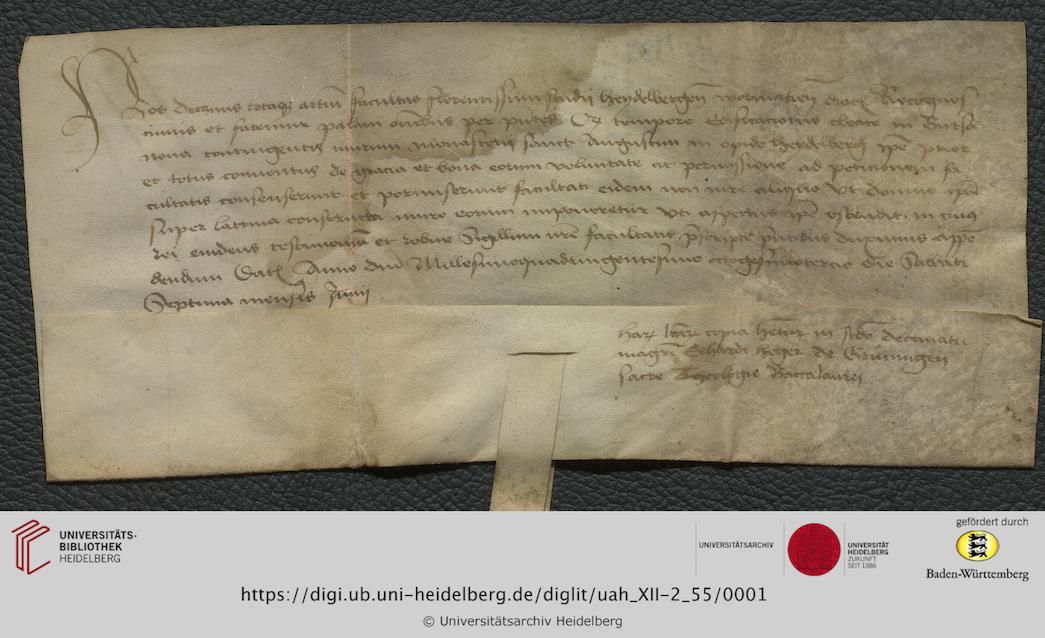 Nos decanus totaque artium facultas florentissimi studii heydelbergen wormacien dioc Recognos
cimus et fatemur palam omnibus per presentes Et tempore edificationis cloace in Bursa
nova contingentis murum monasterii sancti Augustini in opido heydelberg ipse prior
et totus conventus de gracia et bona eorum voluntate ac permissione ad peticionem fa
cultatis consenserunt et permiserunt facultati eidem non iure aliquo Ut domus ipsa
super latrina constructa muro eorum imponeretur uti aspectus ipse ostendit in cuius
rei evidens testimonium et robur Sigillum nostre facultatis presentibus duximus appen
dendum Dat Anno dni Millesimoquadringentesimo octogesimotercio die Sabati
Septima mensis Junii
copia in decanatu
magri Erhardi de Gruningen
sacre Theologie Baccalaurei
UNIVERSITÄTS-
BIBLIOTHEK
HEIDELBERG
UNIVERSITÄTSARCHIV
UNIVERSITÄT
HEIDELBERG
ZUKUNFT
SEIT 1386
gefördert durch
Baden-Württemberg
https://digi.ub.uni-heidelberg.de/diglit/uah_XII-2_55/0001
© Universitätsarchiv Heidelberg